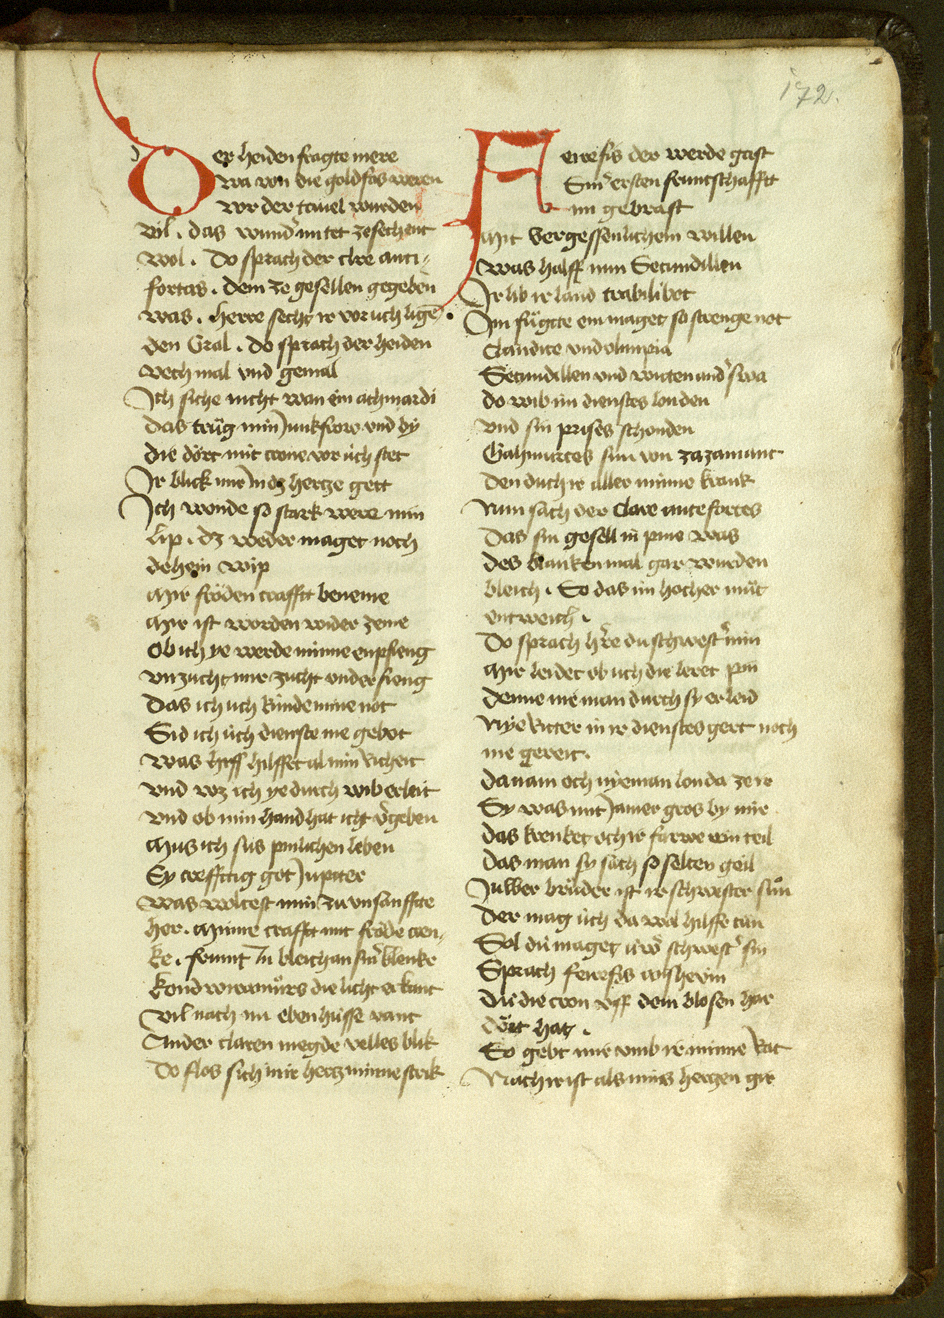 172.
Der heiden fragte mere
Wa von die goldfas weren
vor der tavel wurden
vil . das wund' im tet ze sechent
wol . Do sprach der clre anti-
fortas . dem ze gesellen gegeben
was . herre secht ir vor uch lige
den Gral . do sprach der heiden
vech mal vnd gemal
Ich siche nicht wan ein achmardi
das trüg min Junkfrow vnd by
die dört mit crone vor üch stet
Ir blick mir In dz hertze gett
Ich wonde so stark were min
lip . dz weder maget noch
dehein wip
Mir fröden crafft beneme
Mir ist worden wider zeme
Ob ich ye werde minne enpfieng
vnzucht mir zucht vnderfieng
Das ich üch künde mine not
Sid ich üch dienste nie gebot
was hilff hilffet al min richeit
vnd wz ich ye durch wib erleit
vnd ob min hand hat icht v'geben
Mus ich sus pinlichen leben
Ey creffttig got Jupiter
was woltest min zu vnsanffte
her . Minne crafft mit fröde cren-
ke . frumt In bleich an sin' blenke
Kondwiramürs die licht erkant
vil nach im eben hüsse vant
Ander claren megde velles blik
Do flos sich mir hertz minne strik
Ferefis der werde gast
Sin' ersten fruntschafft
im gebrast
Mit vergessenlichem willen
was halff nun Secundillen
Ir lib ir land trabilibot
Im fügte ein maget so strenge not
Claudite vnd olimpia
Secundillen vnd vorten and' swa
do wib im dienstes londen
vnd sin prises schonden
Gahmuretes sun von zazamant
Den duch ir aller minne krank
Nun sach der Clare antefortes
Das sin gesell in pine was
des blanken mal gar wurden
bleich . So das im hocher müt
entweich .
Do sprach h're du schwest' min
Mir leidet ob üch die leret pin
denne nie man durch sy erleid
Nye Ritter in ir dienstes gert noch
nie gereit .
da nam och nyeman lon da ze ir
Sy was mit Jamer gros by mir
das krenket och ir farwe ein teil
das man sy sach so selten geil
Juwer brüder ist ir schwester sun
Der mag üch da wol hilffe tün
Sol dü maget iuw' schwest' sin
Sprach ferefis anshevin
Dü die cron vff dem blosen har
dört hat .
So gebt mir vmb ir minne Rat
Nach ir ist als mins hertzen gir